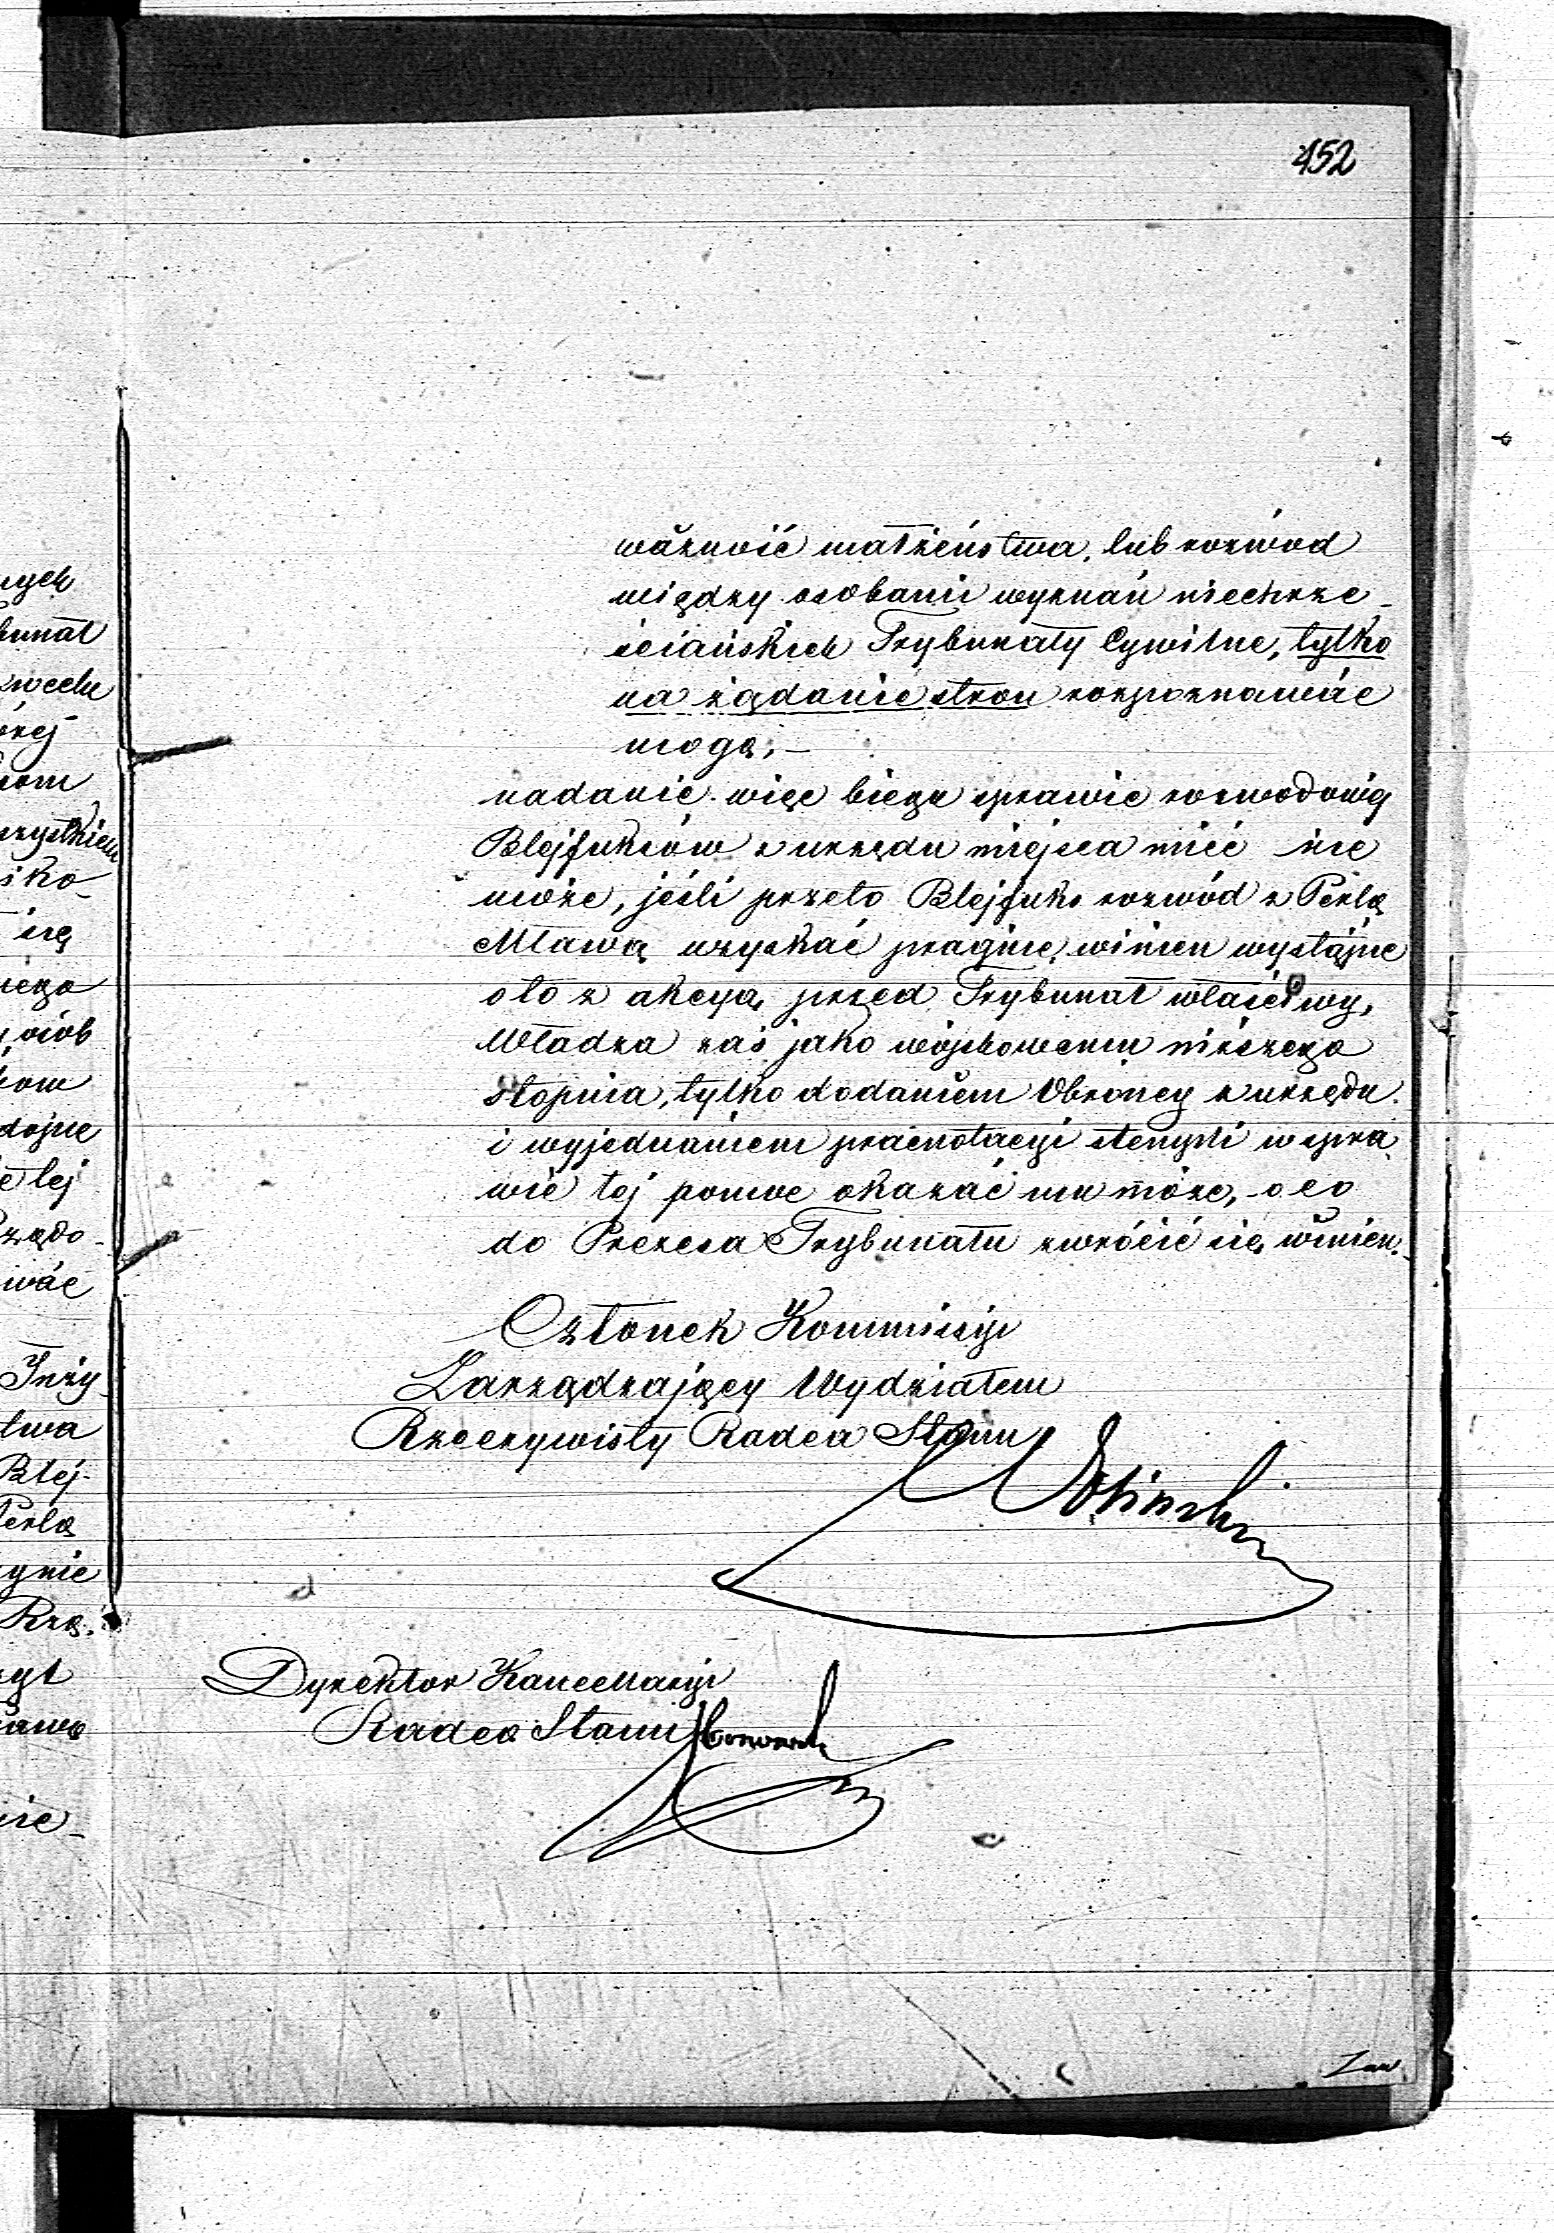 452
ważność małżeństwa, lub rozwód
między osobami wyznań niechrze-
ściańskich Trybunały Cywilne, tylko
na żądanie stron rozpoznawać
mogą; —
nadanie więc biegu sprawie rozwodowéj
Blejfuksów z urzędu miejsca mieć nie
może, jeśli przeto Blejfuks rozwód z Perlą
Mławą uzyskać pragnie, winien wystąpić
o to z akcyą przed Trybunał właściwy,
Władza zaś jako wojskowemu niższego
stopnia, tylko dodaniem Obrońcy z urzędu
i wyjednaniem praenotacyi stempli w spra-
wie téj pomoc okazać mu może, o co
do Prezesa Trybunału zwrócić się winien.
Członek Kommissyi
Zarządzający Wydziałem
Rzeczywisty Radca Stanu
Dyrektor Kancellaryi
Radca Stanu
nych
bunał
órej
wszystkiem
się
osób
dojne
téj
Rządo-
wać
Inży-
twa
Blej-
Perlą
Rzą.
nie-